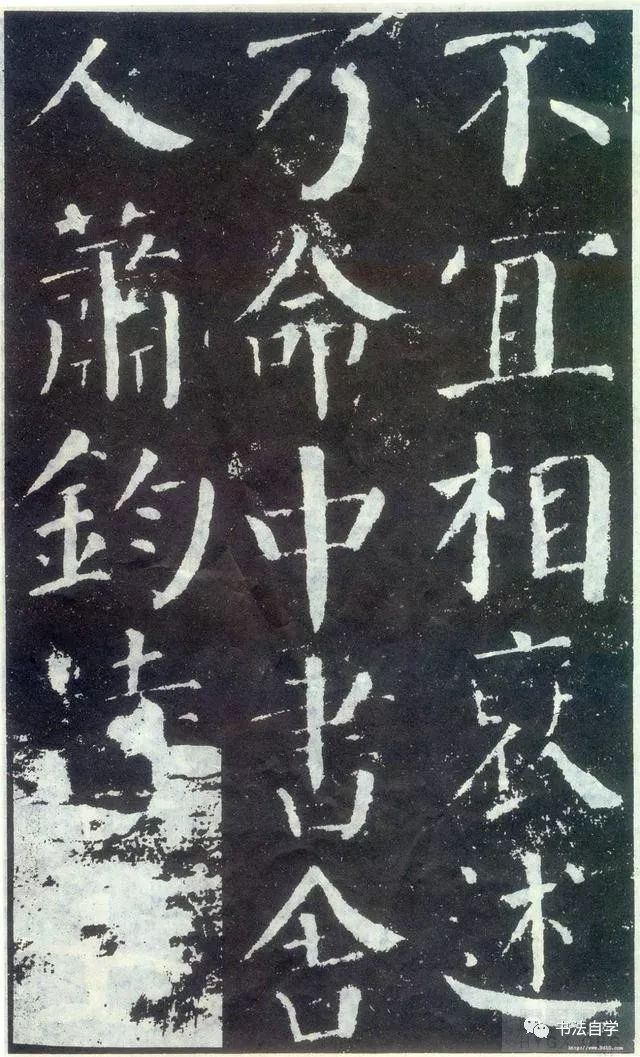 不宜相述
乃命中書舍
人蕭鈞
书法自学